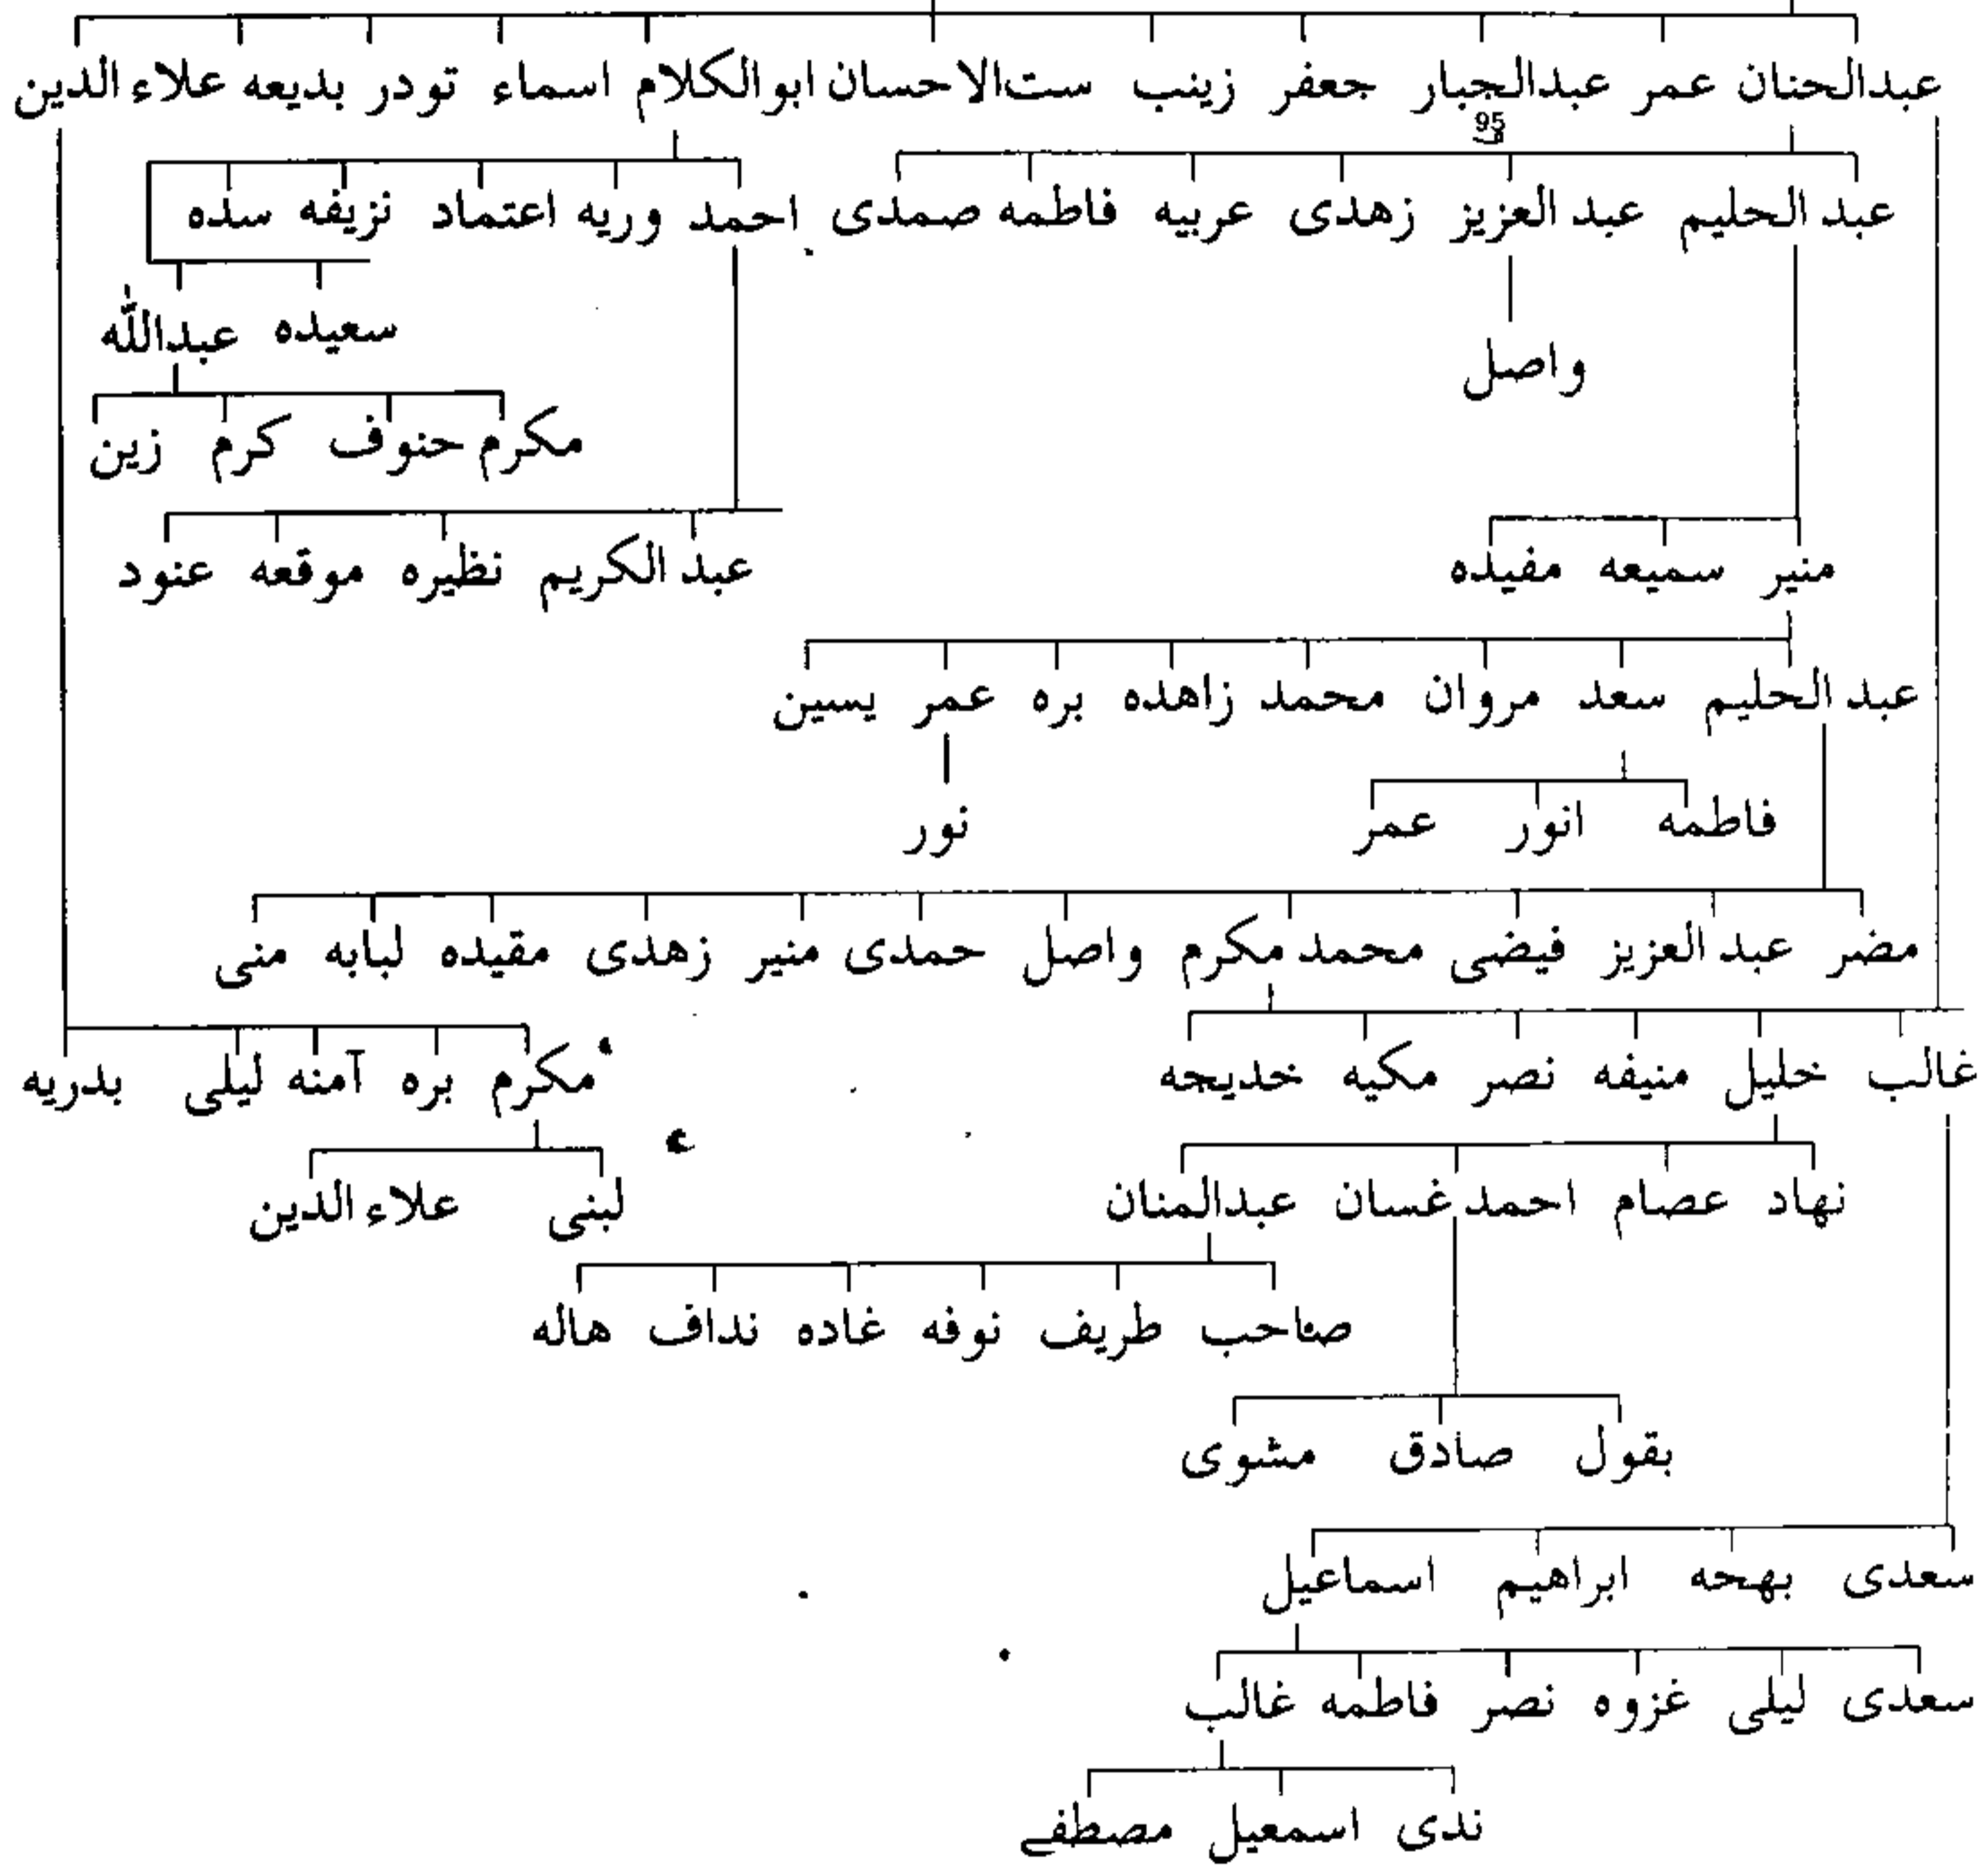 عبدالحنان عمر عبدالجبار جعفر زينب ست‌الاحسان ابوالكلام اسماء تودر بديعه علاءالدين
95
عبدالحليم عبدالعزيز زهدى عربيه فاطمه صمدى احمد وريه اعتماد نزيفه سده
سعيده عبدالله
واصل
مكرم حنوف كرم زين
منير سميعه مفيده عبدالكريم نظيره موقعه عنود
عبدالحليم سعد مروان محمد زاهده بره عمر يسين
فاطمه انور عمر نور
مضر عبدالعزيز فيضى محمد مكرم واصل حمدى منير زهدى مقيده لبابه منى
غالب خليل منيفه نصر مكيه خديجه مكرم بره آمنه ليلى بدريه
نهاد عصام احمد غسان عبدالمنان لبنى علاءالدين
صاحب طريف نوفه غاده نداف هاله
بقول صادق مشوى
سعدى بهحه ابراهيم اسماعيل
سعدى ليلى غزوه نصر فاطمه غالب
ندى اسمعيل مصطفے